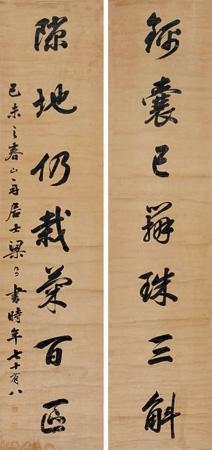 錦囊已辦珠三斛
隙地仍栽菊百區
己未之春山舟居士梁同書時年七十有八